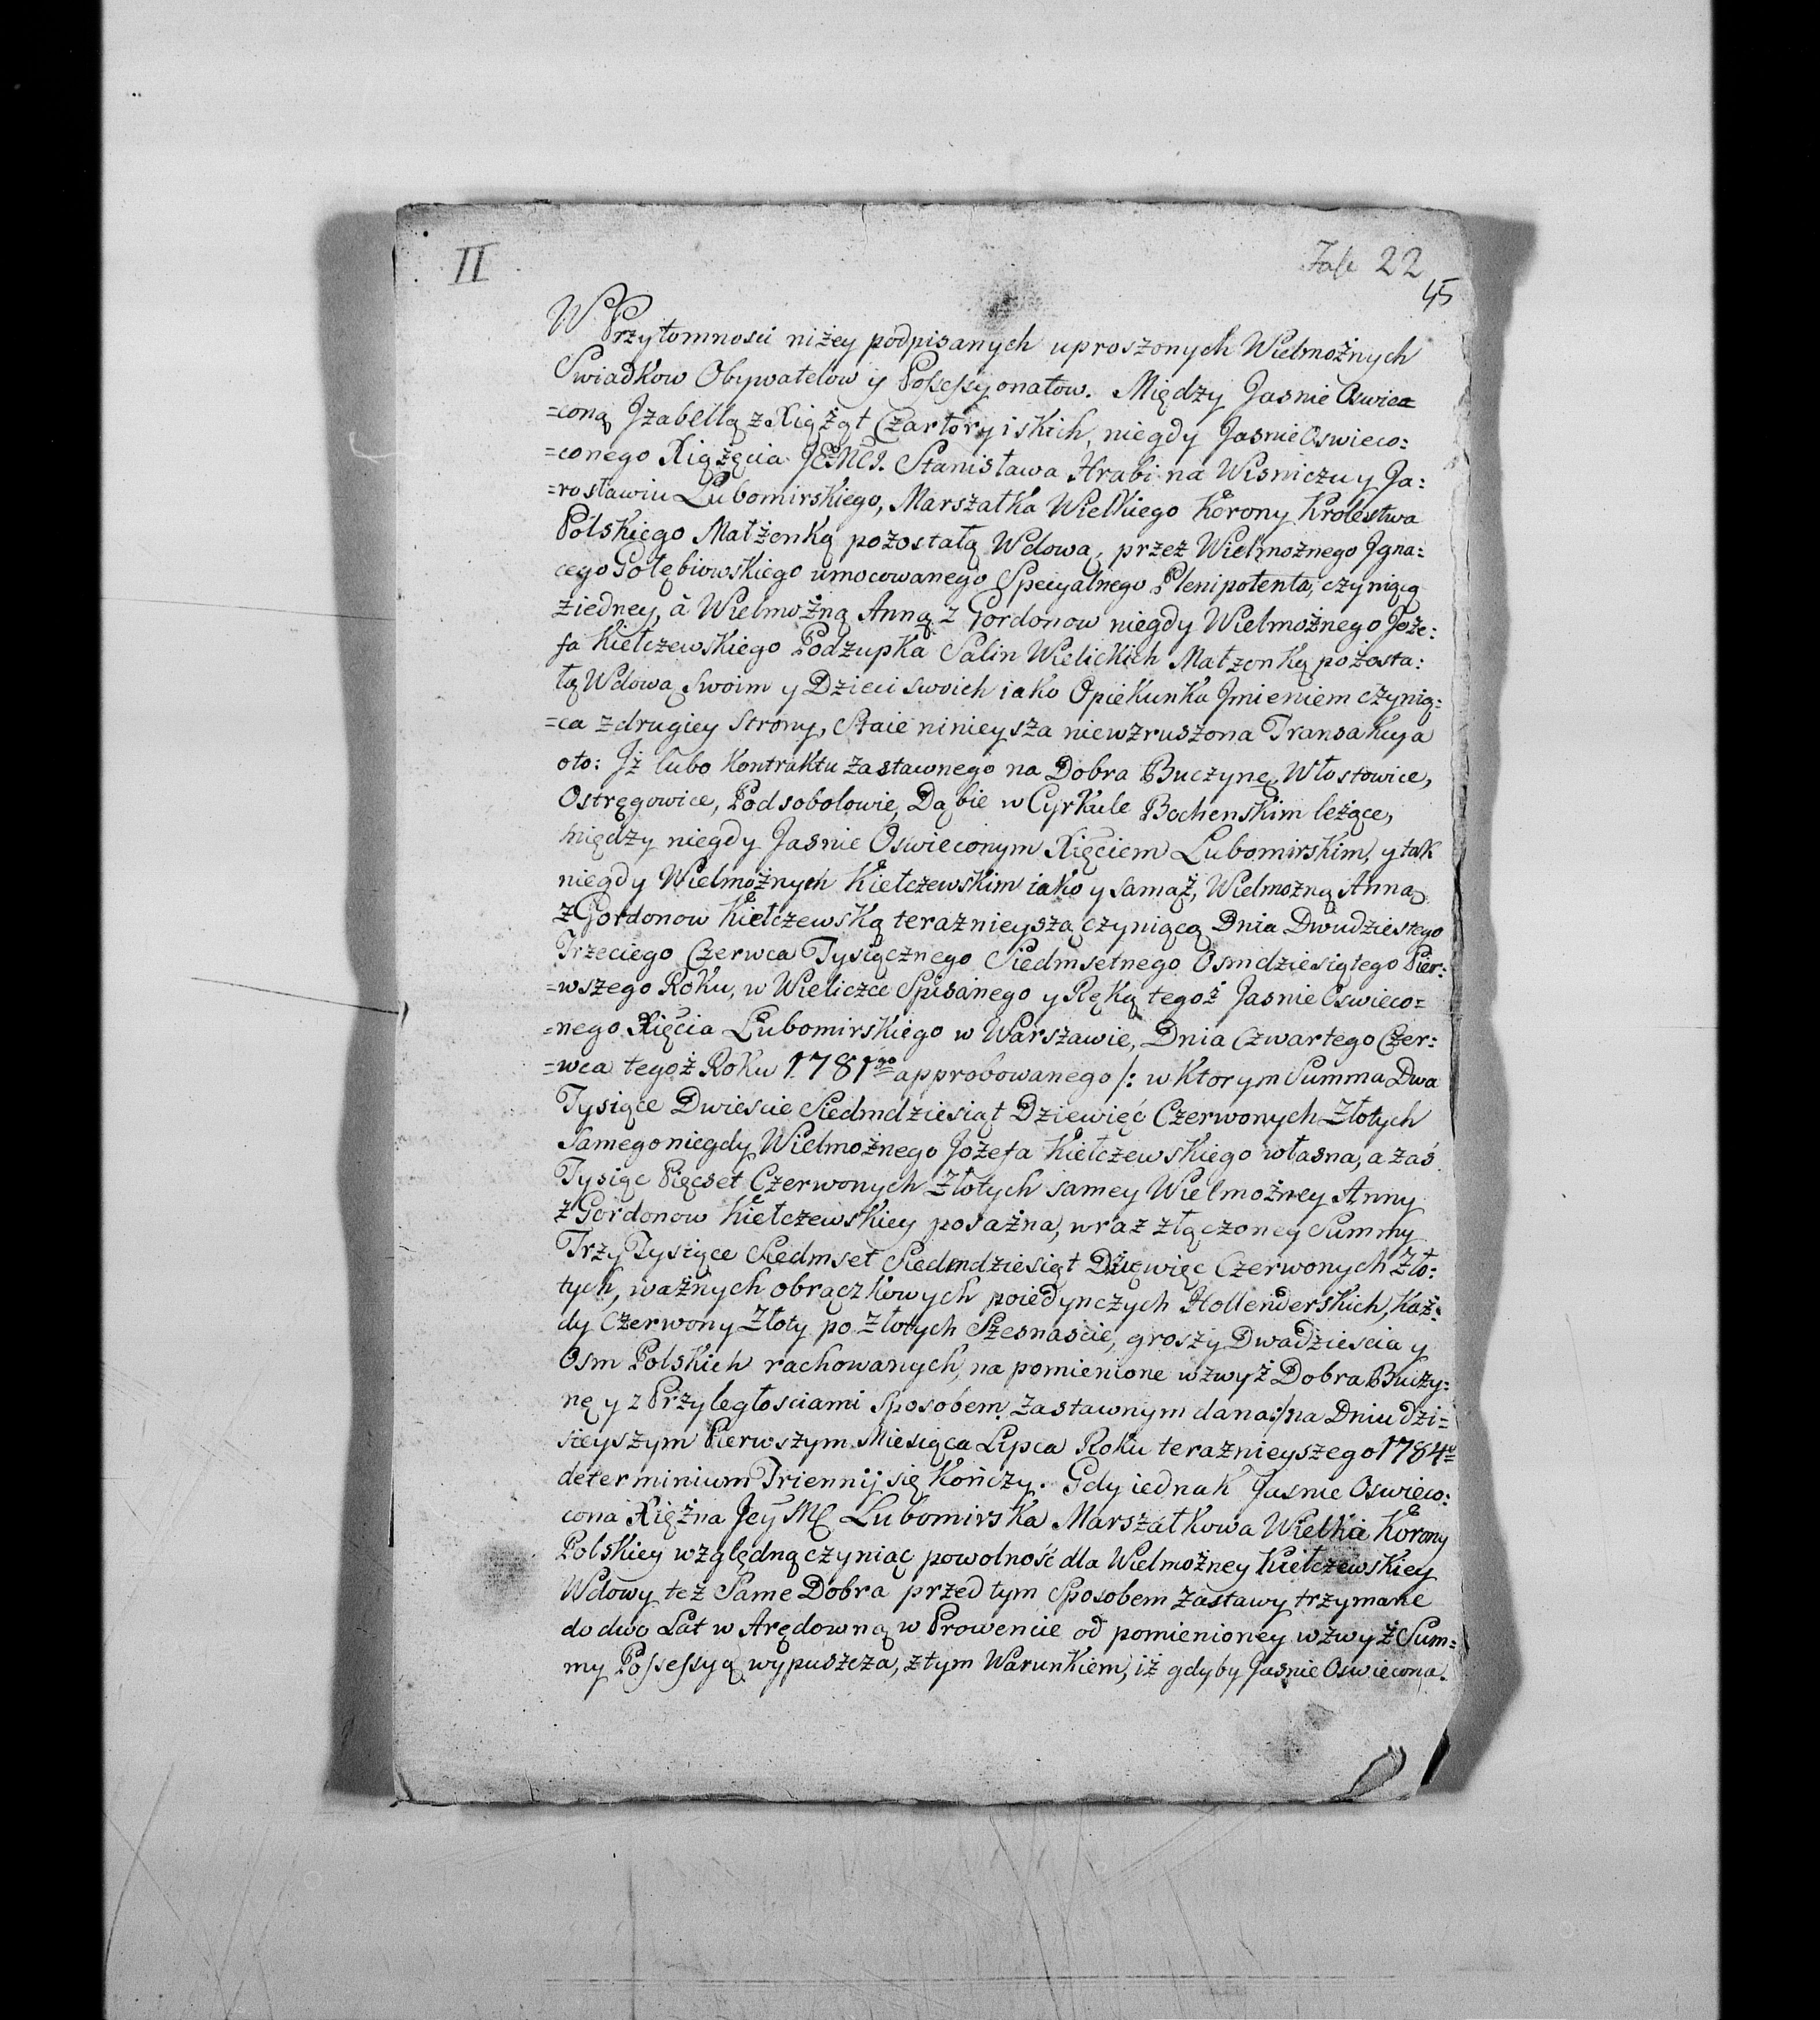 II
Fasc 22
45
W Przytomności niżey podpisanych uproszonych Wielmożnych
Swiadkow Obywatelow y Possessyonatow. Między Jasnie Oswiea
=coną Jzabellą z Xiążąt Czartoryiskich, niegdy Jasnie Oswieco:
=conego Xiążęcia JEMCJ. Stanisława Hrabi na Wisniczu y Ja:
=rosławiu Lubomirskiego, Marszałka Wielkiego Korony Krolestwa
Polskiego Małżonką pozostałą Wdową, przez Wielmożnego Jgna:
cego Gołębiowskiego umocowanego Specyalnego Plenipotenta, czyniącą
z iedney, à Wielmożną Anną z Gordonow niegdy Wielmożnego Joze:
fa Kiełczewskiego Podzupka Salin Wielickich Małzonką pozosta:
łą Wdową Swoim y Dzieci swoich iako Opiekunka Jmieniem czynią:
=ca z drugiey Strony, Staie ninieysza niewzruszona Transakcya
oto: Jż lubo Kontraktu zastawnego na Dobra Buczynę, Włostowice,
Ostręgowice, Podsobolowie, Dąbie w Cyrkule Bochenskim leżące,
między niegdy Jasnie Oswieconym Xięciem Lubomirskim, y tak
niegdy Wielmożnych Kiełczewskim iako y samąż, Wielmożną Anną
z Gordonow Kiełczewską teraznieyszą czyniącą Dnia Dwudziestego
Trzeciego Czerwca Tysiącznego Siedmsetnego Osmdziesiątego Pier:
=wszego Roku, w Wieliczce Spisanego y Ręką tegoż Jasnie Oswieco=
=nego Xięcia Lubomirskiego w Warszawie, Dnia Czwartego Czer:
=wca tegoż Roku 1781go approbowanego /: w ktorym Summa Dwa
Tysiące Dwieście Siedmdziesiąt Dziewięć Czerwonych Złotych
Samego niegdy Wielmożnego Jozefa Kiełczewskiego własna, a zaś
Tysiąc Pięcset Czerwonych Złotych samey Wielmożney Anny
z Gordonow Kiełczewskiey posażna, wraz złączoney Summy
Trzy Tysiące Siedmset Siedmdziesiąt Dziewięc Czerwonych Zło:
tych, ważnych obrączkowych poiedynczych Hollenderskich, każ:
dy Czerwony Złoty po Złotych Szesnascie, groszy Dwadzieścia y
Osm Polskich rachowanych, na pomienione wzwyż Dobra Buczy:
nę y z Przyległosciami Sposobem Zastawnym dana:/ na Dniu dzi=
sieyszym Pierwszym Miesiąca Lipca Roku teraznieyszego 1784o
determinium Triennij się kończy. Gdy iednak Jasnie Oswieco:
cona Xiężna Jey MC Lubomirska Marszałkowa Wielka Korony
Polskiey względną czyniąc powolność dla Wielmożney Kiełczewskiey
Wdowy też Same Dobra przed tym Sposobem Zastawy trzymane
do dwo Lat w Arędowną w Prowencie od pomienioney wzwyż Sum=
my Possessyą wypuszcza, z tym Warunkiem, iż gdyby Jasnie Oswiecona